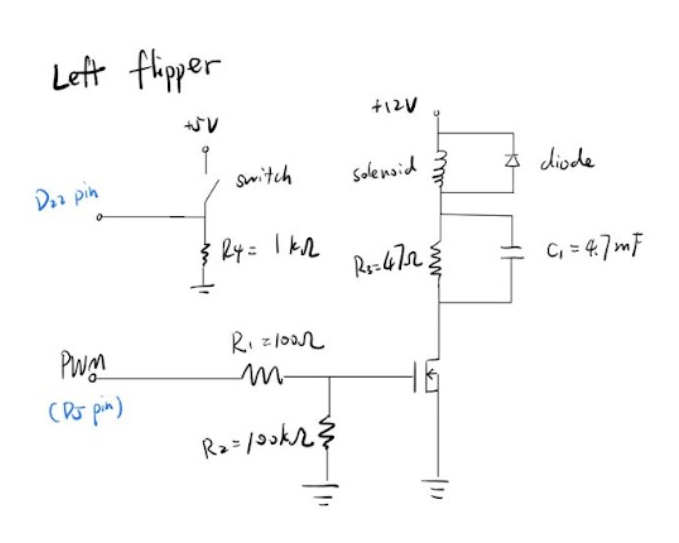 Left flipper
+5V
switch
D22 pin
R4 = 1kΩ
+12V
solenoid
diode
R3=47Ω
C1 = 4.7mF
R1=100Ω
PWM
(D5 pin)
R2=100kΩ